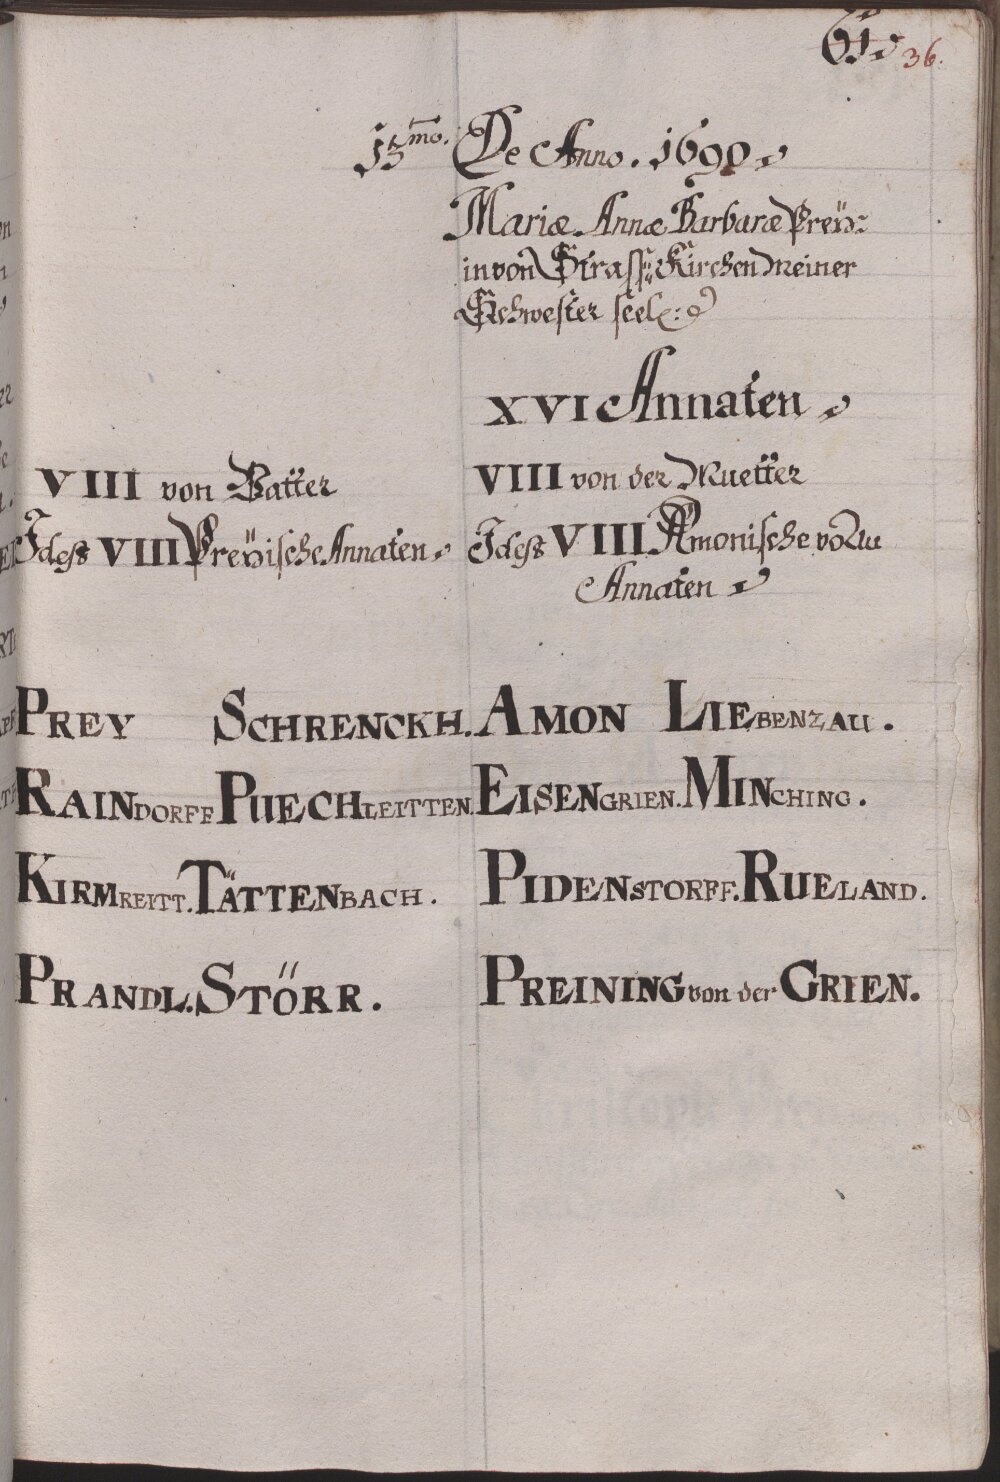 61. 36.
13mo. De Anno. 1690.
Mariæ Annæ Barbaræ Preÿ:
in von Strass: Kirchen meiner
Schwester seel:
XVI Annaten
VIII von Vatter VIII von der Muetter
Idest VIII Preÿische Annaten. Idest VIII Amonische
Annaten
PREY SCHRENCKH. AMON LIEBENZAU.
RAINDORFF PUECHLEITTEN. EISENGRIEN. MINCHING.
KIRMREITT. TÄTTENBACH. PIDENSTORFF. RUELAND.
PRANDL. STÖRR. PREINING von der GRIEN.